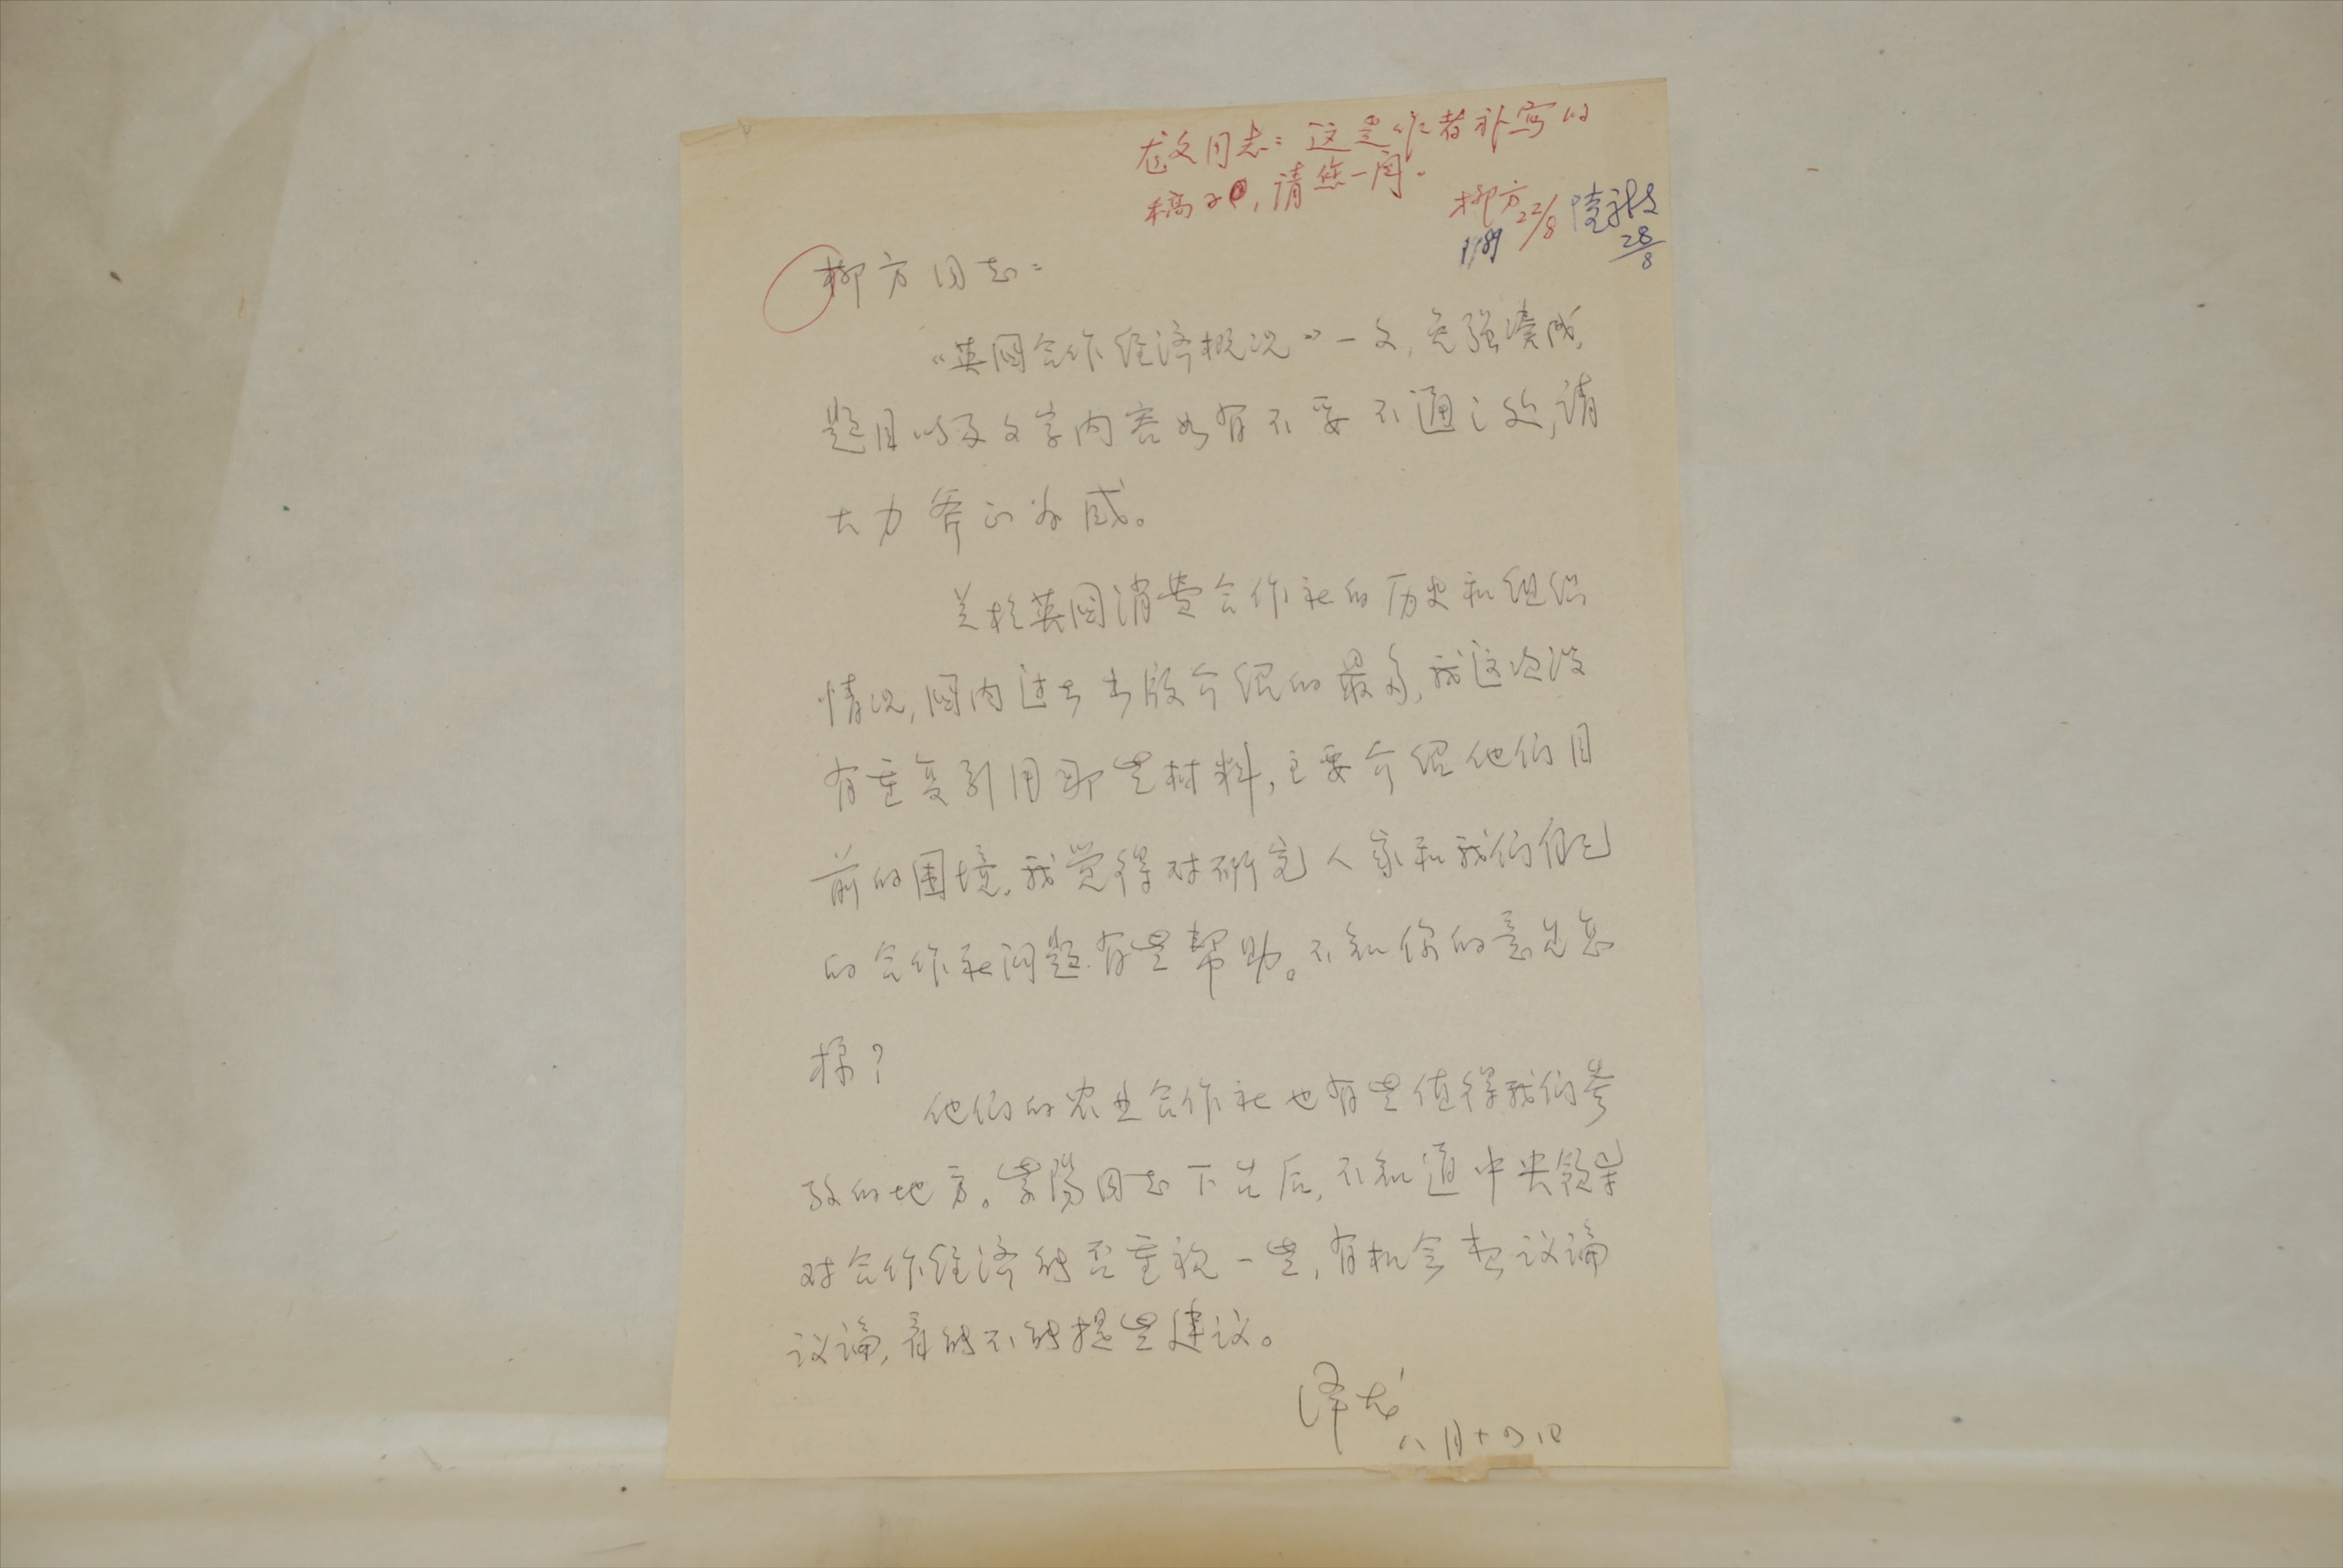 尤文同志：这是作者补写的
稿子，请您一阅。
柳方22/8
1989
28/8
柳方同志：
“英国合作经济概况”一文，免强凑成，
题目以及文字内容如有不妥不通之处，请
大力斧正为感。
关于英国消费合作社的历史和组织
情况，国内过去出版介绍的最多，我这次没
有重复引用那些材料，主要介绍他们目
前的困境。我觉得对研究人家和我们自己
的合作社问题有些帮助。不知你的意见怎
样？
他们的农业合作社也有些值得我们参
考的地方。紫阳同志下台后，不知道中央领导
对合作经济能否重视一些，有机会想议论
议论，看能不能提些建议。
泽龙
八月十四日